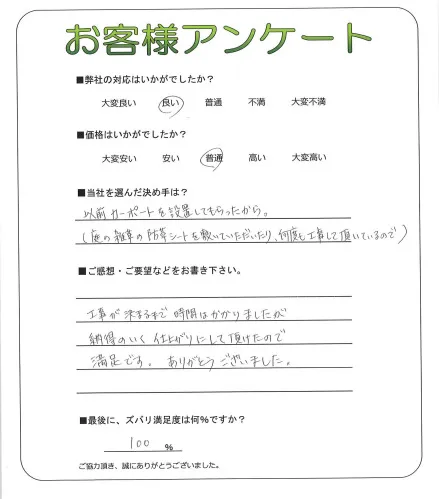 お客様アンケート
■弊社の対応はいかがでしたか？
大変良い 良い 普通 不満 大変不満
■価格はいかがでしたか？
大変安い 安い 普通 高い 大変高い
■当社を選んだ決め手は？
以前カーポートを設置してもらったから。
(庭の雑草の防草シートを敷いていただいたり、何度も工事して頂いているので)
■ご感想・ご要望などをお書き下さい。
工事が決まるまで時間はかかりましたが
納得のいく仕上がりにして頂けたので
満足です。ありがとうございました。
■最後に、ズバリ満足度は何%ですか？
100 %
ご協力頂き、誠にありがとうございました。